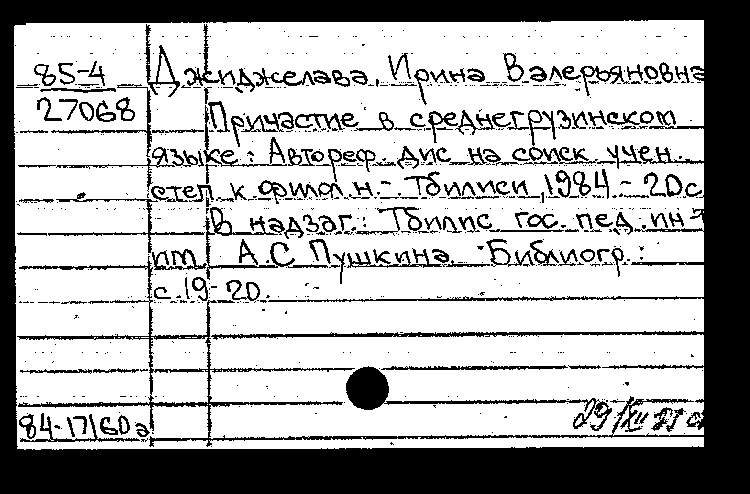 85-4
27068
Джиджелава, Ирина Валерьяновна
Причастие в среднегрузинском
языке: Автореф. дис на соиск учен.
степ к филол.н.-. Тбилиси, 1984.- 20с
В надзаг.: Тбилис гос. пед. ин-т
им. А.С Пушкина. Библиогр.:
с.19-20.
84-17160а
29/XII